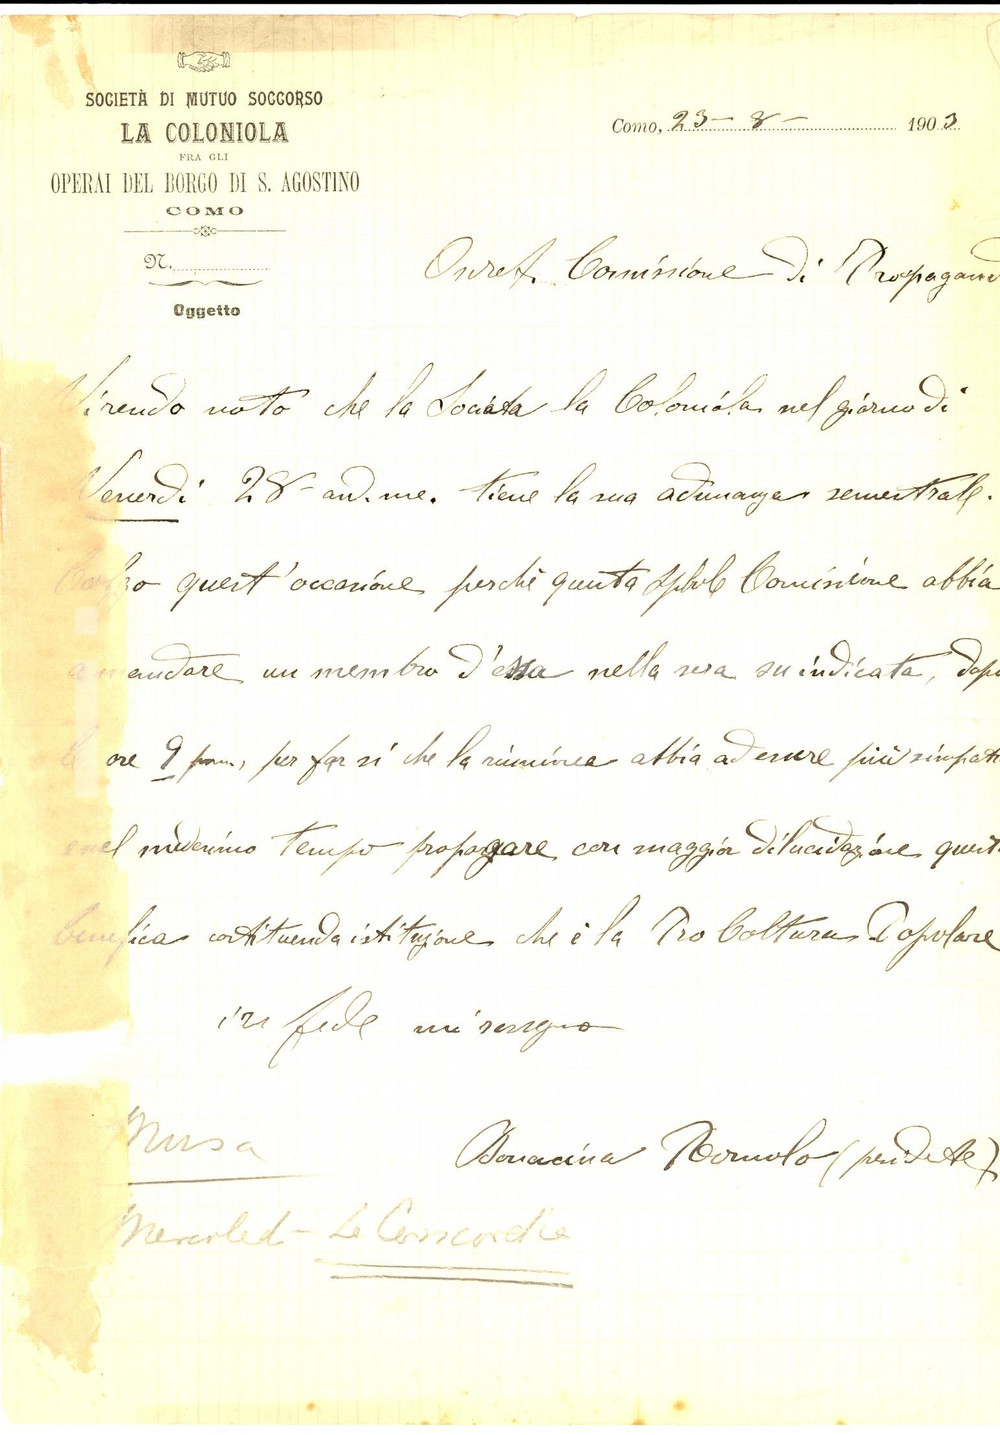 SOCIETÀ DI MUTUO SOCCORSO
LA COLONIOLA
FRA GLI
OPERAI DEL BORGO DI S. AGOSTINO
COMO
N.
Oggetto
Como, 23 - 8 - 1903
Commissione di Propagand
noto che la Società la Coloniola nel giorno di
Venerdi 28 - and. me. tiene la sua adunanza semestrale.
quest'occasione perchè questa Commissione abbia
a mandare un membro d'essa nella sera su indicata, dopo
le ore 9 pom., per far si che la riunione abbia ad essere più simpati
e nel medesimo tempo propagare con maggior dilucidazione questa
benefica costituenda istituzione che è la Pro Coltura Popolare
in fede mi rassegno
Bonacina Romolo (presidente)
Musa
Mercoled - La Concordia